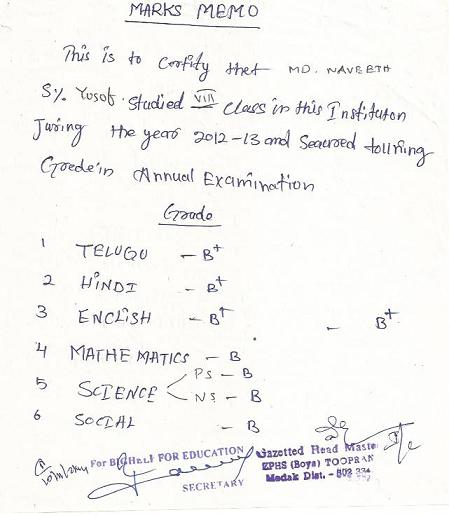 MARKS MEMO
This is to Certify that MD. NAVEETH
S/o Yusof. Studied VIII class in this Instituton
During the year 2012-13 and Seacured following
Grade in Annual Examination
Grade
1 TELUGU - B+
2 HINDI - B+
3 ENCLISH - B+ - B+
4 MATHEMATICS - B
5 SCIENCE PS - B
NS - B
6 SOCIAL - B
For BIGHELP FOR EDUCATION
SECRETARY
Gazetted Head Maste
ZPHS (Boys) TOOPRAN
Medak Dist. - 502 334